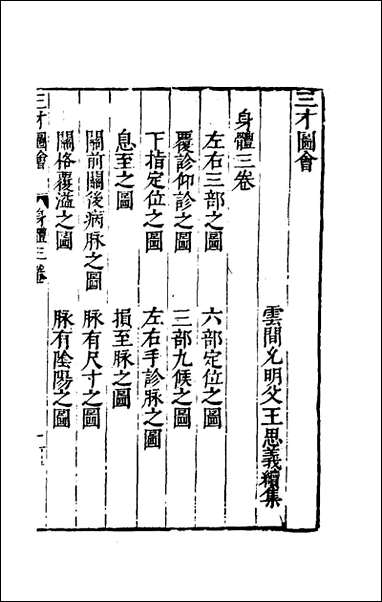 三才圖會
雲間允明父王思義續集
身體三卷
左右三部之圖　六部定位之圖
覆診仰診之圖　三部九候之圖
下指定位之圖　左右手診脉之圖
息至之圖　損至脉之圖
關前關後病脉之圖　脉有尺寸之圖
關格覆溢之圖　脉有陰陽之圖
三才圖會　身體三卷